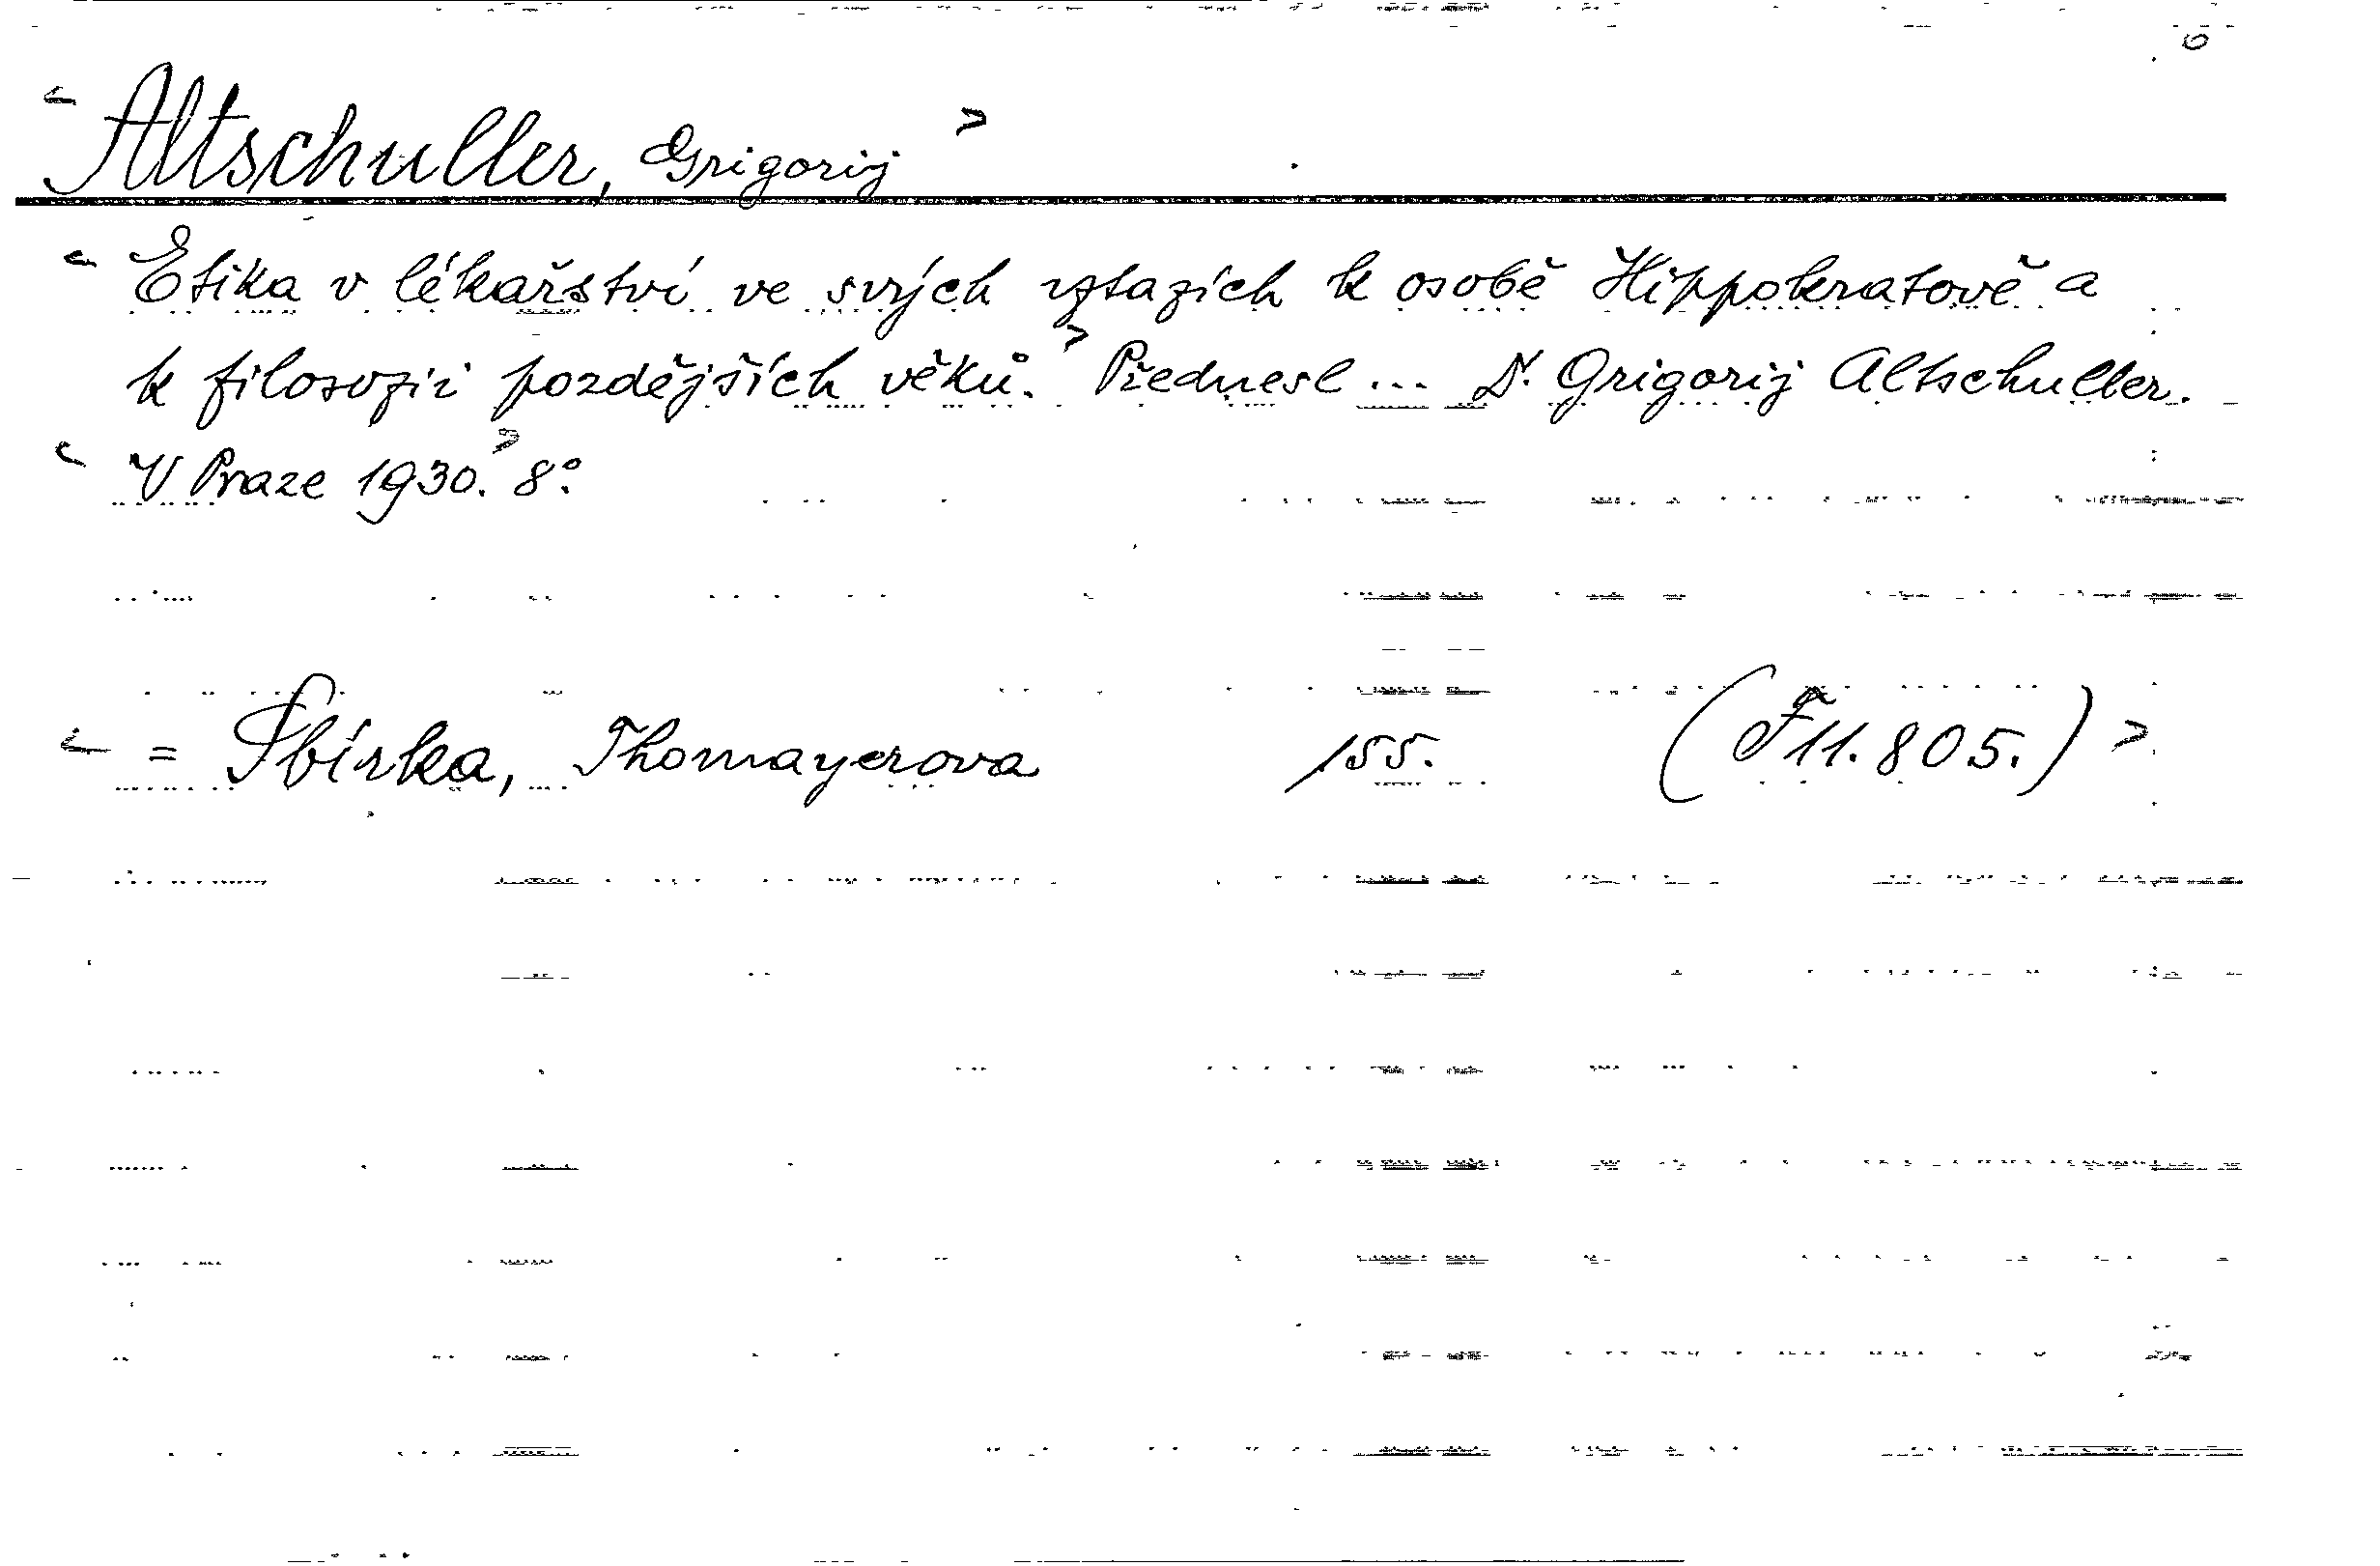 < Altschuller, Grigorij >
< Etika v lékařství ve svých vztazích k osobě Hippokratově a
k filosofii pozdějších věků. > Přednesl ... Dr. Grigorij Altschuller.
< V Praze 1930. > 8°.
< = Sbírka, Thomayerova 155. (F 11.805.) >